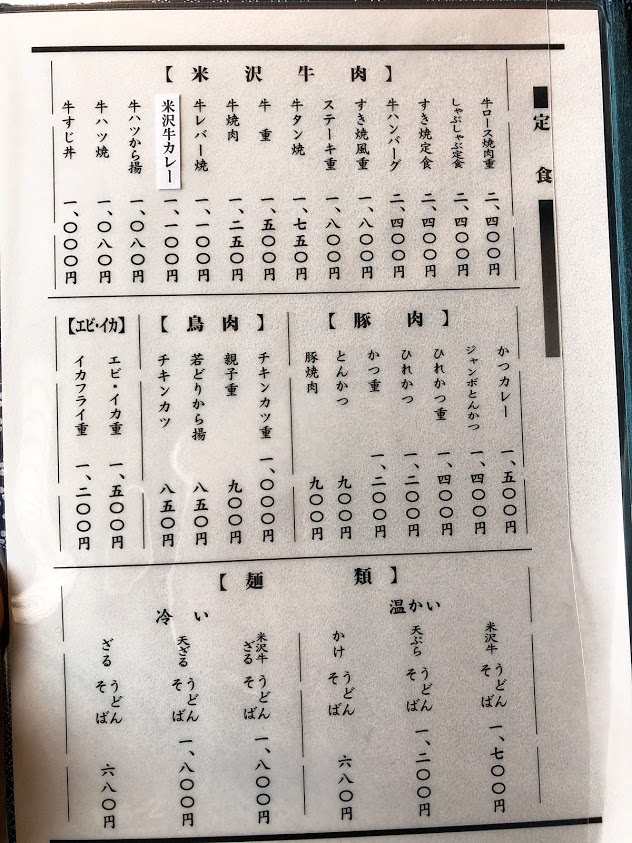 定食
【米沢牛肉】
牛ロース焼肉重 二、四〇〇円
しゃぶしゃぶ定食 二、四〇〇円
すき焼定食 二、四〇〇円
牛ハンバーグ 二、四〇〇円
すき焼風重 一、八〇〇円
ステーキ重 一、八〇〇円
牛タン焼 一、七五〇円
牛重 一、五〇〇円
牛焼肉 一、二五〇円
牛レバー焼 一、一〇〇円
米沢牛カレー 一、一〇〇円
牛ハツから揚 一、〇八〇円
牛ハツ焼 一、〇八〇円
牛すじ丼 一、〇〇〇円
【豚肉】
かつカレー 一、五〇〇円
ジャンボとんかつ 一、四〇〇円
ひれかつ重 一、四〇〇円
ひれかつ 一、二〇〇円
かつ重 一、二〇〇円
とんかつ 九〇〇円
豚焼肉 九〇〇円
【鳥肉】
チキンカツ重 一、〇〇〇円
親子重 九〇〇円
若どりから揚 八五〇円
チキンカツ 八五〇円
【エビ・イカ】
エビ・イカ重 一、五〇〇円
イカフライ重 一、二〇〇円
【麺類】
温かい
米沢牛 うどん そば 一、七〇〇円
天ぷら うどん そば 一、二〇〇円
かけ うどん そば 六八〇円
冷い
米沢牛ざる うどん そば 一、八〇〇円
天ざる うどん そば 一、八〇〇円
ざる うどん そば 六八〇円